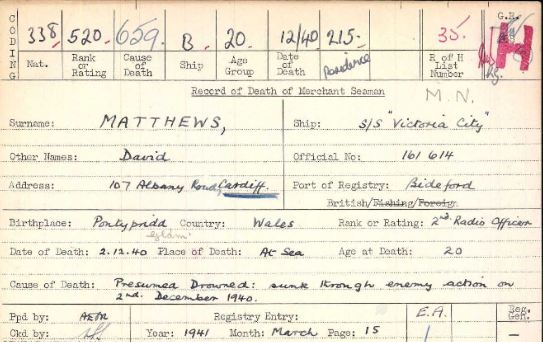 CODING 338 520 659 B. 20. 12/40 215. 35. G.R.
Nat. Rank or Rating Cause of Death Ship Age Group Date of Death Residence R of H List Number H
Record of Death of Merchant Seaman M.N.
Surname: MATTHEWS, Ship: S/S "Victoria City"
Other Names: David Official No: 161614
Address: 107 Albany Road, Cardiff. Port of Registry: Bideford
British/Fishing/Foreig.
Birthplace: Pontypridd Country: Wales Rank or Rating: 2nd Radio Officer
Glam.
Date of Death: 2.12.40 Place of Death: At Sea Age at Death: 20
Cause of Death: Presumed Drowned: sunk through enemy action on
2nd. December 1940.
Ppd by: Registry Entry: E.A. Reg. Gen.
Ckd by: Year: 1941 Month: March Page: 15 1 -